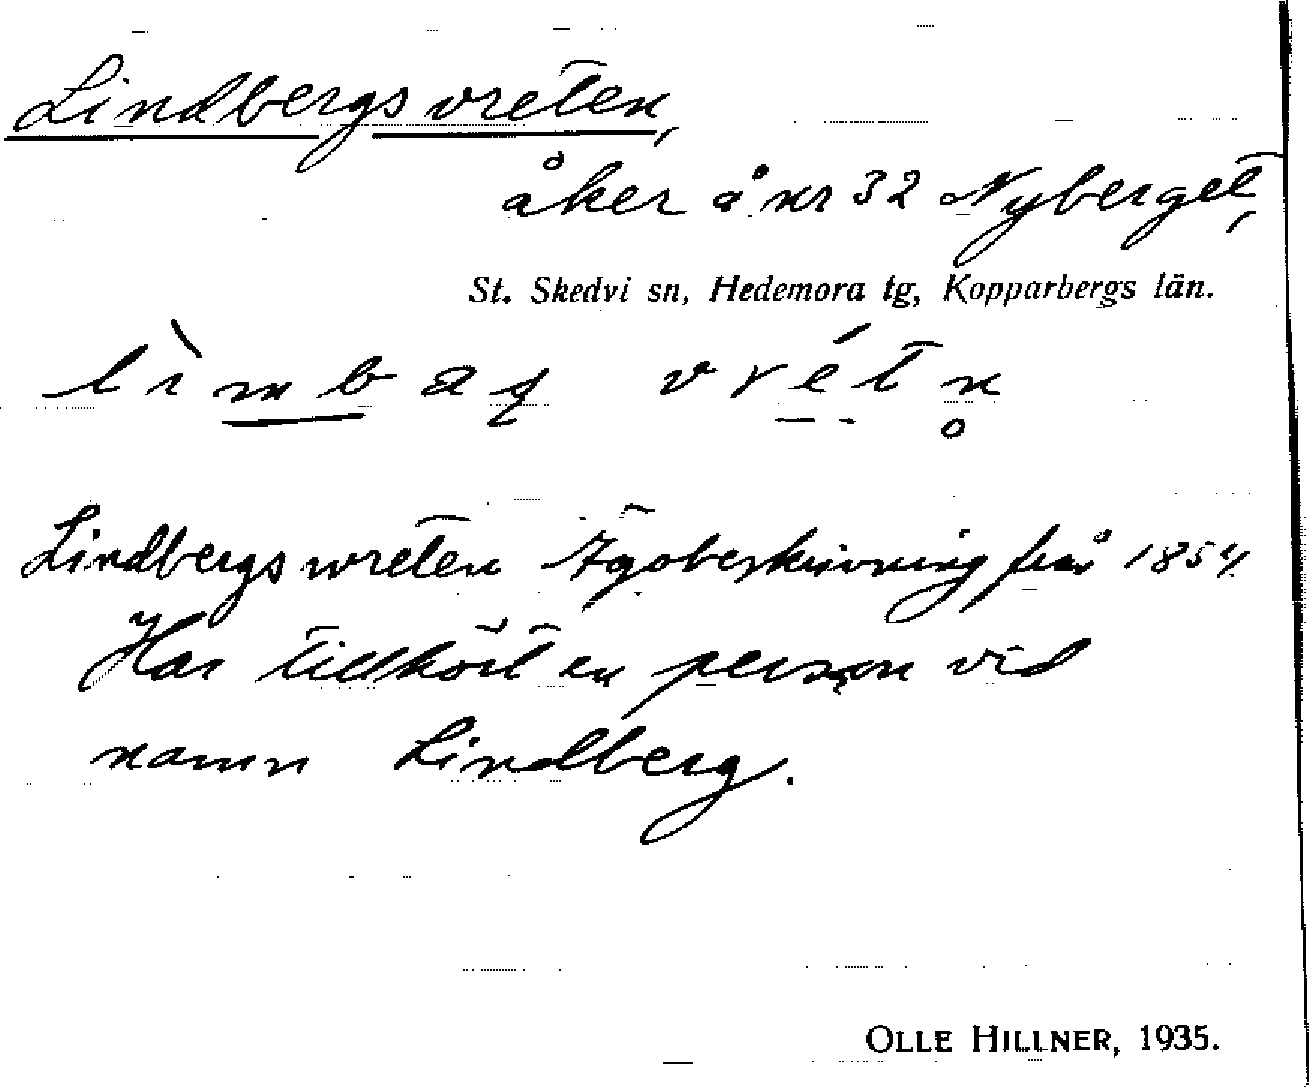 Lindbergsvreten,
åker å nr 32 Nyberget,
St. Skedvi sn, Hedemora tg, Kopparbergs län.
Lindbergs wreten Ägobeskrivning från 1854.
Har tillhört en person vid
namn Lindberg.
OLLE HILLNER, 1935.